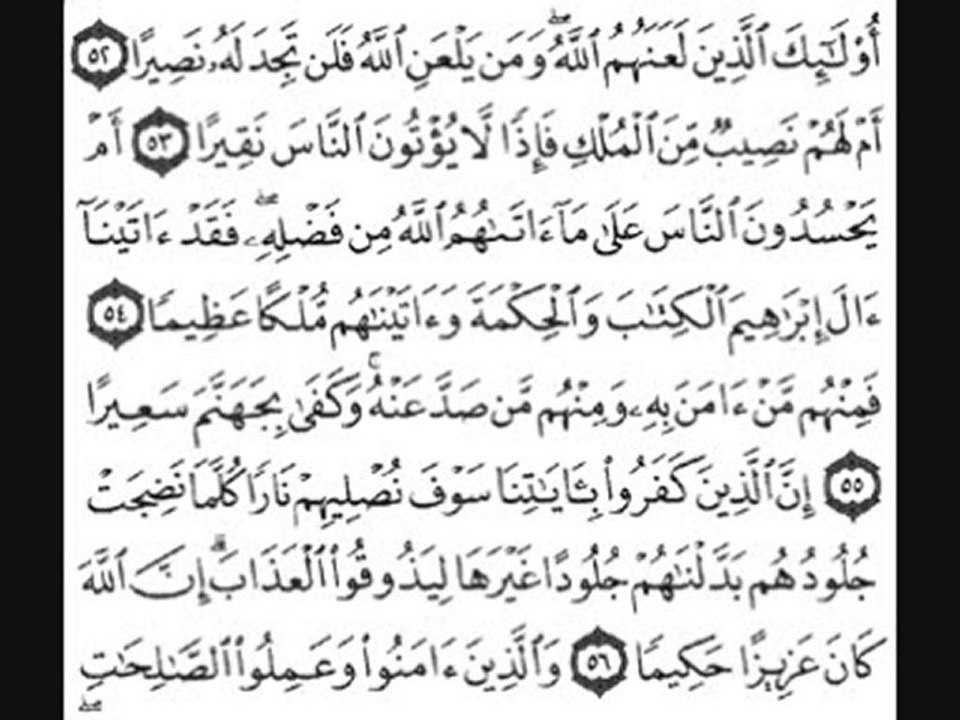 أُوْلَٰٓئِكَ ٱلَّذِينَ لَعَنَهُمُ ٱللَّهُۖ وَمَن يَلْعَنِ ٱللَّهُ فَلَن تَجِدَ لَهُۥ نَصِيرًا ٥٢
أَمْ لَهُمْ نَصِيبٌ مِّنَ ٱلْمُلْكِ فَإِذًا لَّا يُؤْتُونَ ٱلنَّاسَ نَقِيرًا ٥٣ أَمْ
يَحْسُدُونَ ٱلنَّاسَ عَلَىٰ مَآ ءَاتَىٰهُمُ ٱللَّهُ مِن فَضْلِهِۦۖ فَقَدْ ءَاتَيْنَآ
ءَالَ إِبْرَٰهِيمَ ٱلْكِتَٰبَ وَٱلْحِكْمَةَ وَءَاتَيْنَٰهُم مُّلْكًا عَظِيمًا ٥٤
فَمِنْهُم مَّنْ ءَامَنَ بِهِۦ وَمِنْهُم مَّن صَدَّ عَنْهُۚ وَكَفَىٰ بِجَهَنَّمَ سَعِيرًا
٥٥ إِنَّ ٱلَّذِينَ كَفَرُوا۟ بِـَٔايَٰتِنَا سَوْفَ نُصْلِيهِمْ نَارًا كُلَّمَا نَضِجَتْ
جُلُودُهُم بَدَّلْنَٰهُمْ جُلُودًا غَيْرَهَا لِيَذُوقُوا۟ ٱلْعَذَابَۗ إِنَّ ٱللَّهَ
كَانَ عَزِيزًا حَكِيمًا ٥٦ وَٱلَّذِينَ ءَامَنُوا۟ وَعَمِلُوا۟ ٱلصَّٰلِحَٰتِ